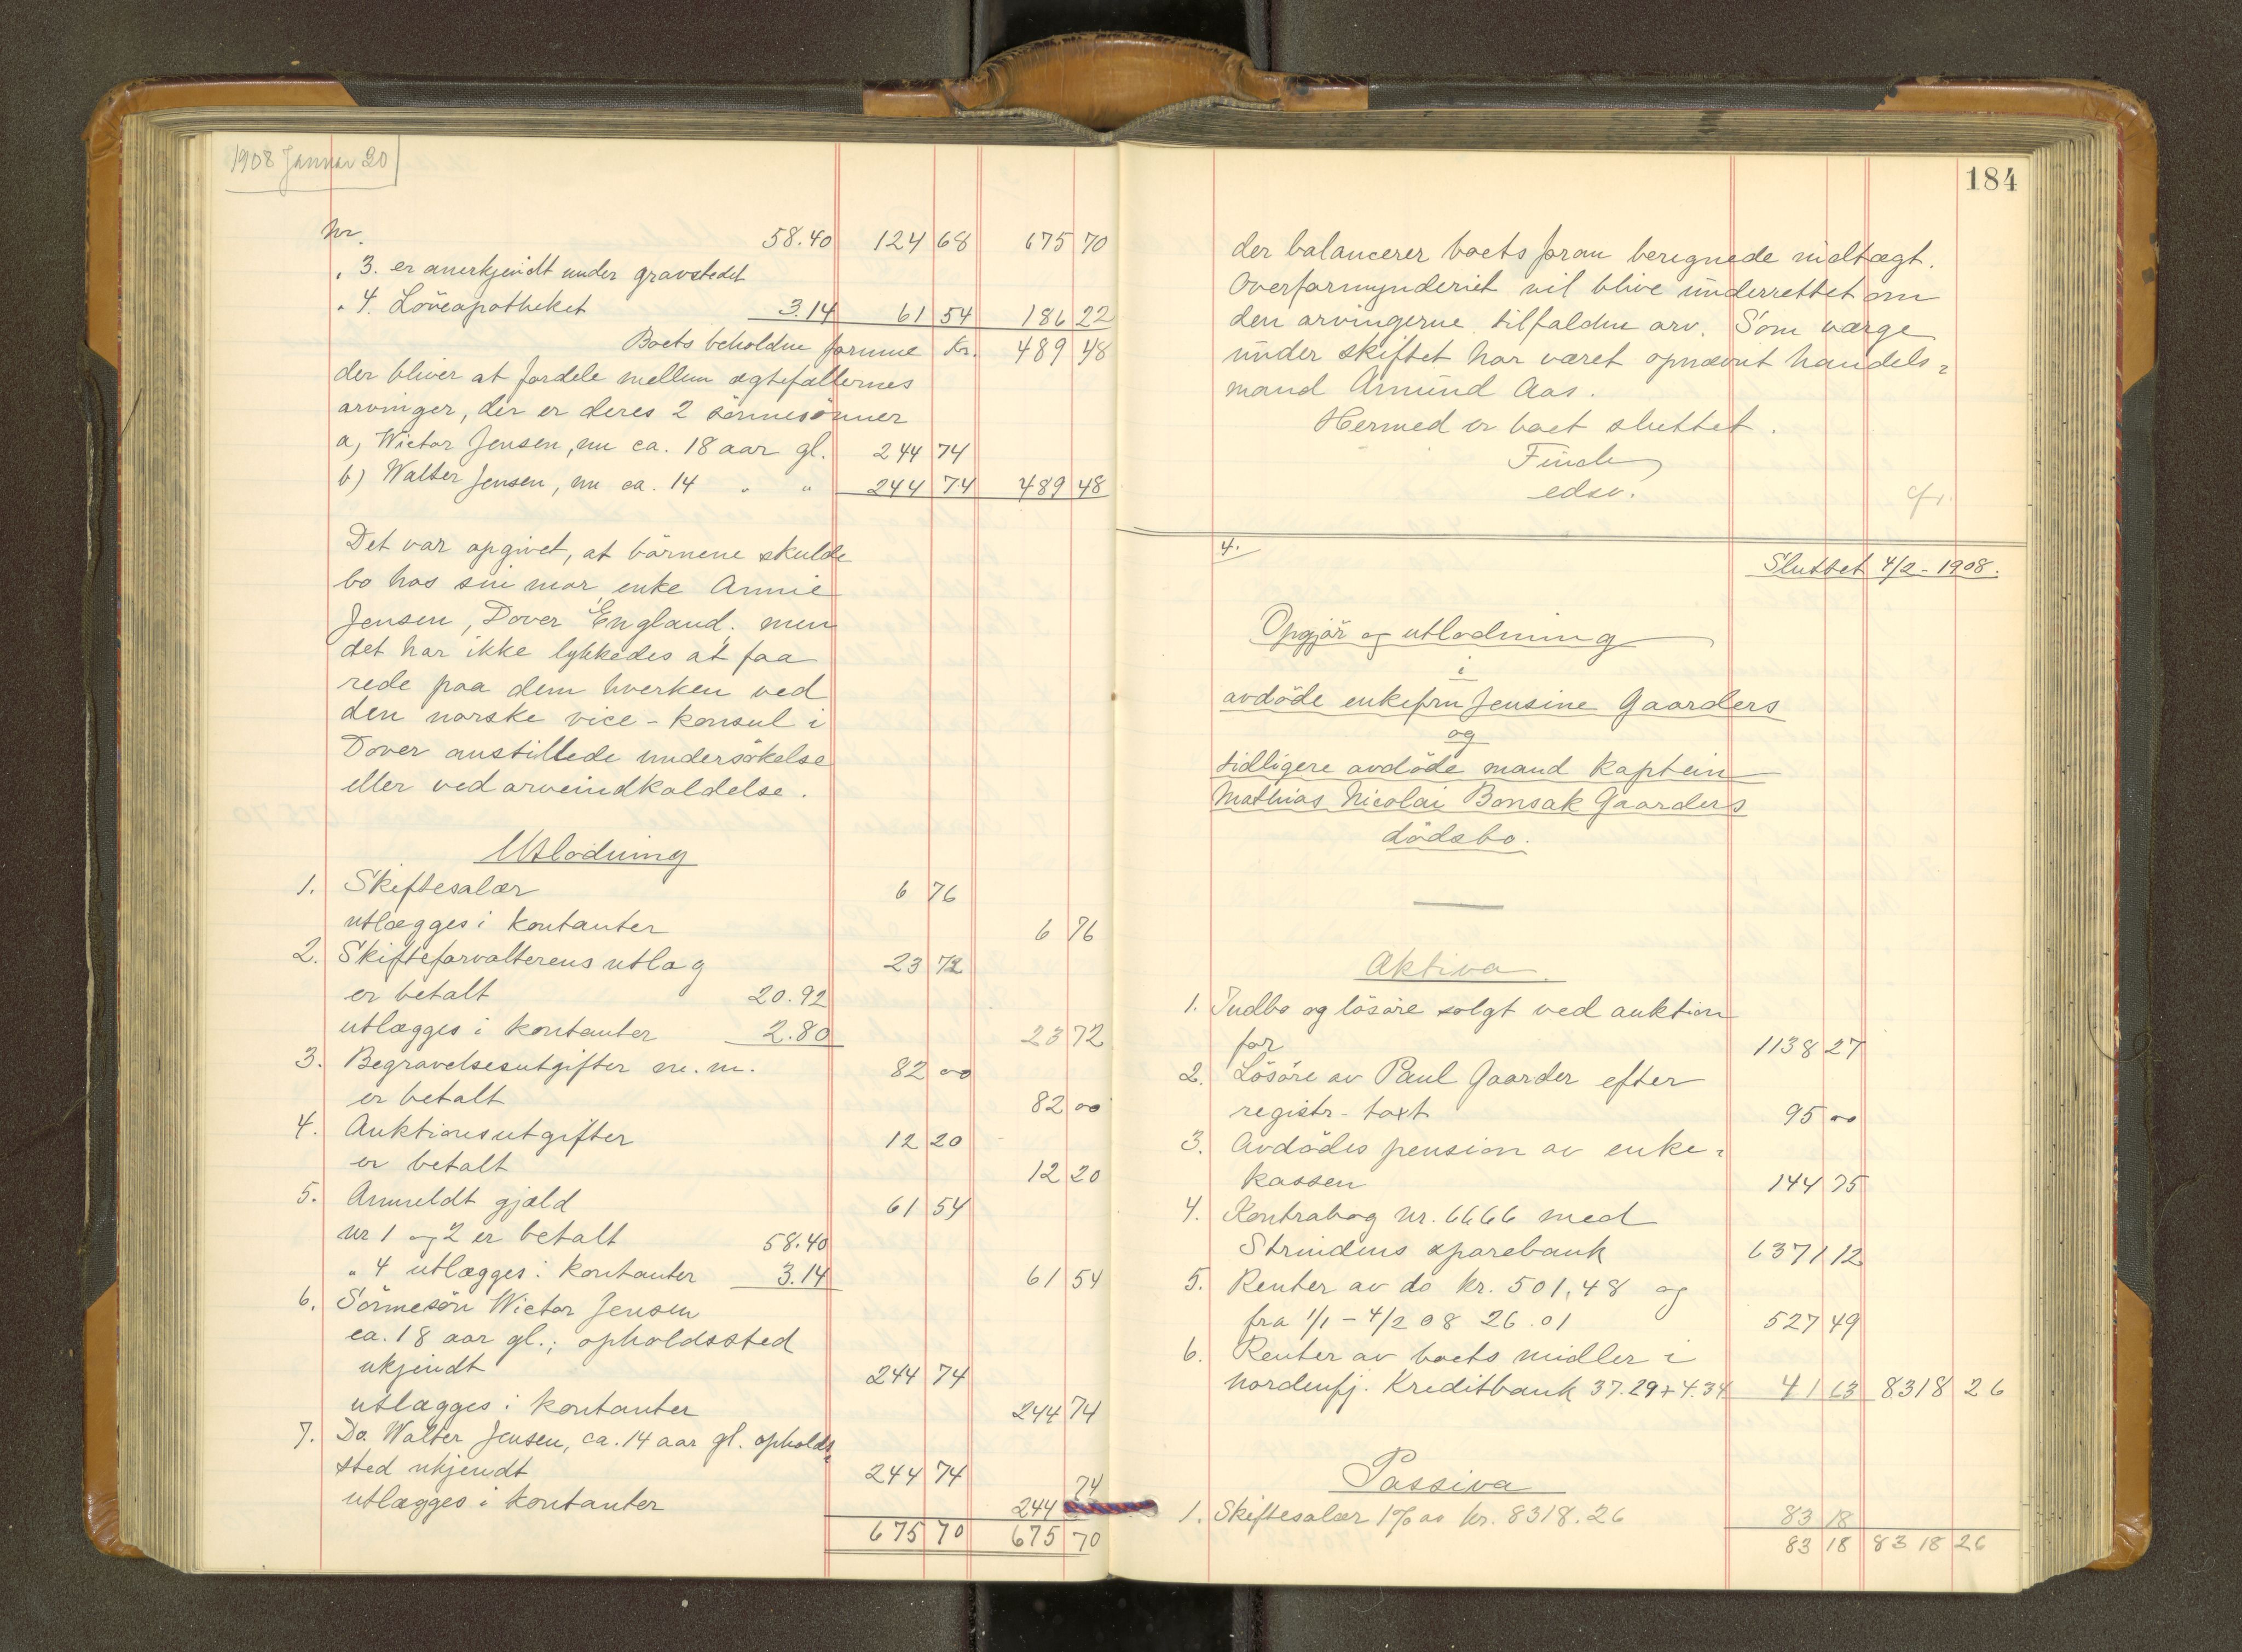 1908 Januar 20
Nr. 58.40 124 68 675 70
" 3. er anerkjendt under gravstedet
" 4. Löveapotheket 3.14 61 54 186 22
Boets beholdne formue Kr. 489 48
der bliver at fordele mellem ægtefællernes
arvinger, der er deres 2 sönnesönner
a) Wictor Jensen, nu ca. 18 aar gl. 244 74
b) Walter Jensen, nu ca. 14 " " 244 74 489 48
Det var opgivet, at börnene skulde
bo hos sin mor, enke Annie
Jensen, Dover England, men
det har ikke lykkedes at faa
rede paa dem hverken ved
den norske vice-konsul i
Dover anstillede undersökelse
eller ved arveindkaldelse.
Utlodning
1. Skiftesalær 6 76
utlægges i kontanter 6 76
2. Skifteforvalterens utlag 23 72
er betalt 20.92
utlægges i kontanter 2.80 23 72
3. Begravelsesutgifter m.m. 82 00
er betalt 82 00
4. Auktionsutgifter 12 20
er betalt 12 20
5. Anmeldt gjæld 61 54
nr 1 og 2 er betalt 58.40
" 4 utlægges i kontanter 3.14 61 54
6. Sönnesön Wictor Jensen
ca. 18 aar gl.; opholdssted
ukjendt 244 74
utlægges i kontanter 244 74
7. Do. Walter Jensen, ca. 14 aar gl. opholds-
sted ukjendt 244 74
utlægges i kontanter 244 74
675 70 675 70
184
der balancerer boets foran beregnede indtægt.
Overformynderiet vil blive underrettet om
den arvingerne tilfaldne arv. Som værge
under skiftet har været opnævnt handels-
mand Amund Aas.
Hermed er boet sluttet.
Finch
edsv.
4.
Sluttet 4/2-1908.
Opgjör og utlodning
i
avdöde enkefru Jensine Gaarders
og
tidligere avdöde mand kaptein
Mathias Nicolai Bonsak Gaarders
dödsbo.
Aktiva.
1. Indbo og lösöre solgt ved auktion
for 1138 27
2. Lösöre av Paul Gaarder efter
registr-taxt 95 00
3. Avdödes pension av enke-
kassen 144 75
4. Kontrabog nr. 6666 med
Strindens sparebank 6371 12
5. Renter av do kr. 501,48 og
fra 1/1 - 4/2 08 26.01 527 49
6. Renter av boets midler i
Nordenfj. Kreditbank 37.29 + 4.34 41 63 8318 26
Passiva
1. Skiftesalær 1% av kr. 8318.26 83 18
83 18 8318 26